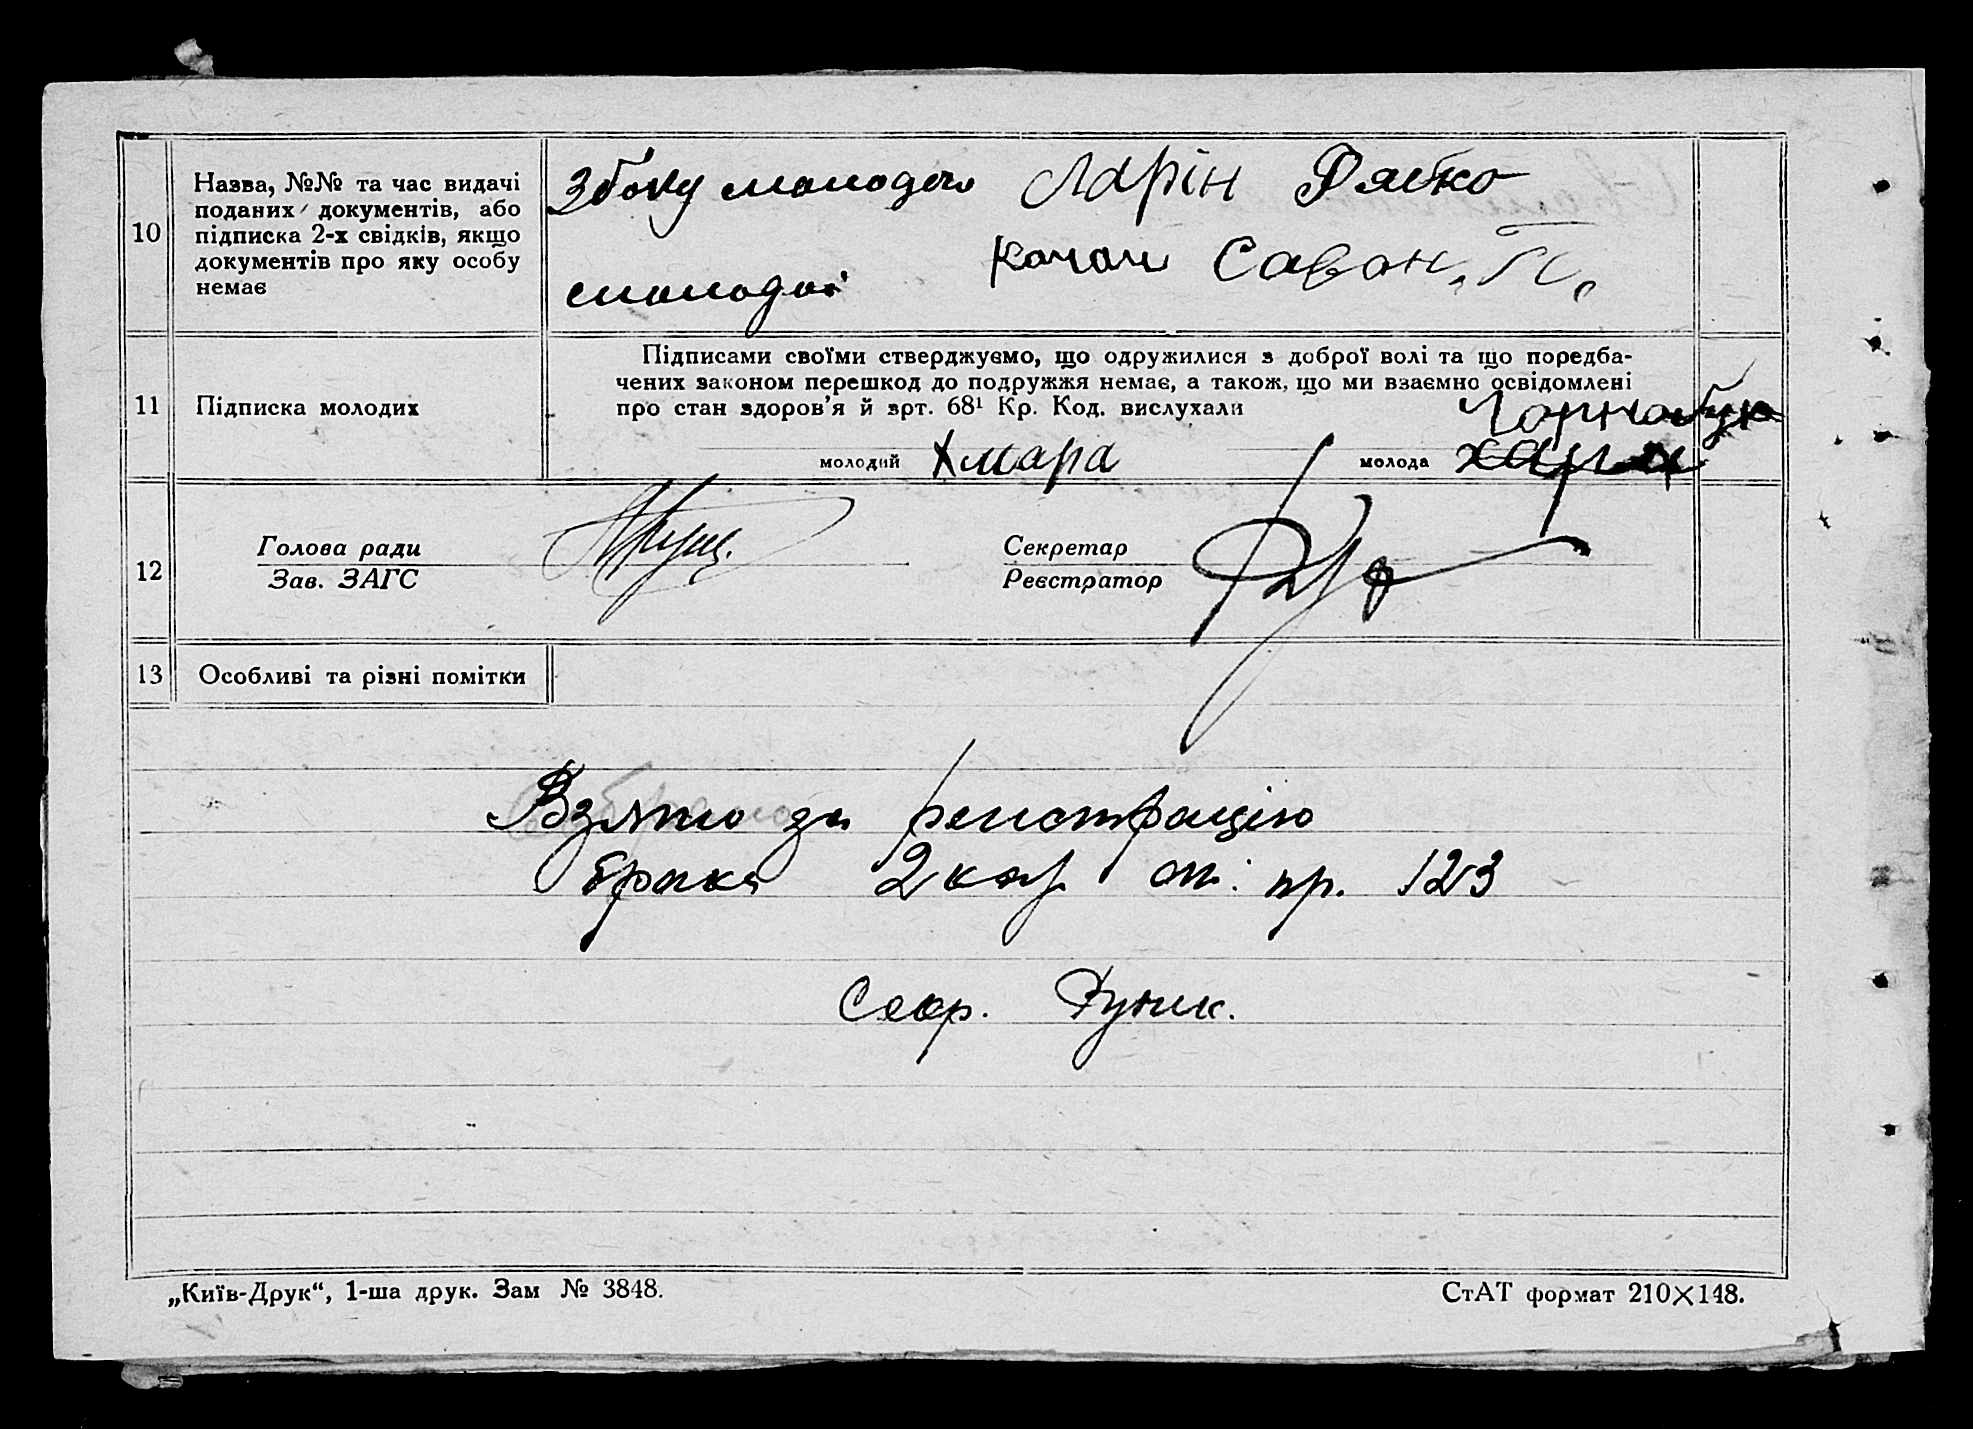 10
Назва, №№ та час видачі
поданих документів, або
підписка 2-х свідків, якщо
документів про яку особу
немає
З боку молодого Ларін Рябко
молодої Качан Саван. П.
11
Підписка молодих
Підписами своїми стверджуємо, що одружилися з доброї волі та що поредба-
чених законом перешкод до подружжя немає, а також, що ми взаємно освідомлені
про стан здоров'я й арт. 68¹ Кр. Код. вислухали
молодий Хмара молода
12
Голова ради
Зав. ЗАГС
Секретар
Реєстратор
13
Особливі та різні помітки
Взято за реистрацію
брака 2 кар от. пр. 123
Секр.
„Київ-Друк“, 1-ша друк. Зам № 3848.
СтАТ формат 210×148.